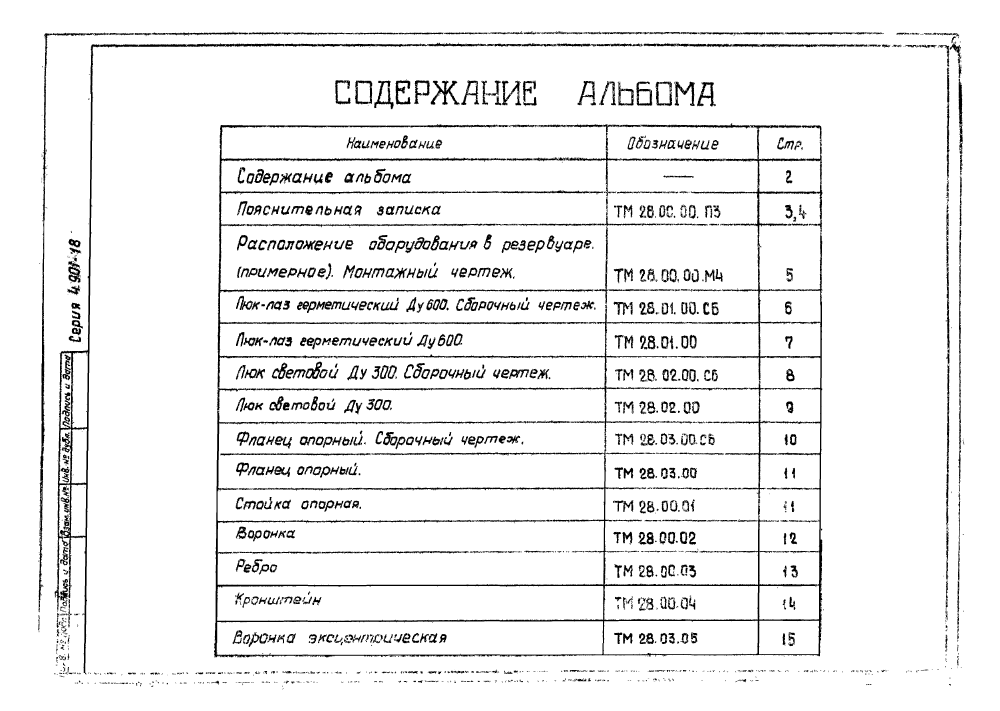 СОДЕРЖАНИЕ АЛЬБОМА
Наименование Обозначение Стр.
Содержание альбома — 2
Пояснительная записка ТМ 28.00.00.ПЗ 3,4
Расположение оборудования в резервуаре.
(примерное). Монтажный чертеж. ТМ 28.00.00.МЧ 5
Люк-лаз герметический Ду600. Сборочный чертеж. ТМ 28.01.00.СБ 6
Люк-лаз герметический Ду600. ТМ 28.01.00 7
Люк световой Ду 300. Сборочный чертеж. ТМ 28.02.00.СБ 8
Люк световой Ду 300. ТМ 28.02.00 9
Фланец опорный. Сборочный чертеж. ТМ 28.03.00.СБ 10
Фланец опорный. ТМ 28.03.00 11
Стойка опорная. ТМ 28.00.01 11
Воронка ТМ 28.00.02 12
Ребро ТМ 28.00.03 13
Кронштейн ТМ 28.00.04 14
Воронка эксцентрическая ТМ 28.03.05 15
Серия 4.901-18
Подпись и дата
Инв. № дубл.
Взам. инв. №
Подпись и дата
2